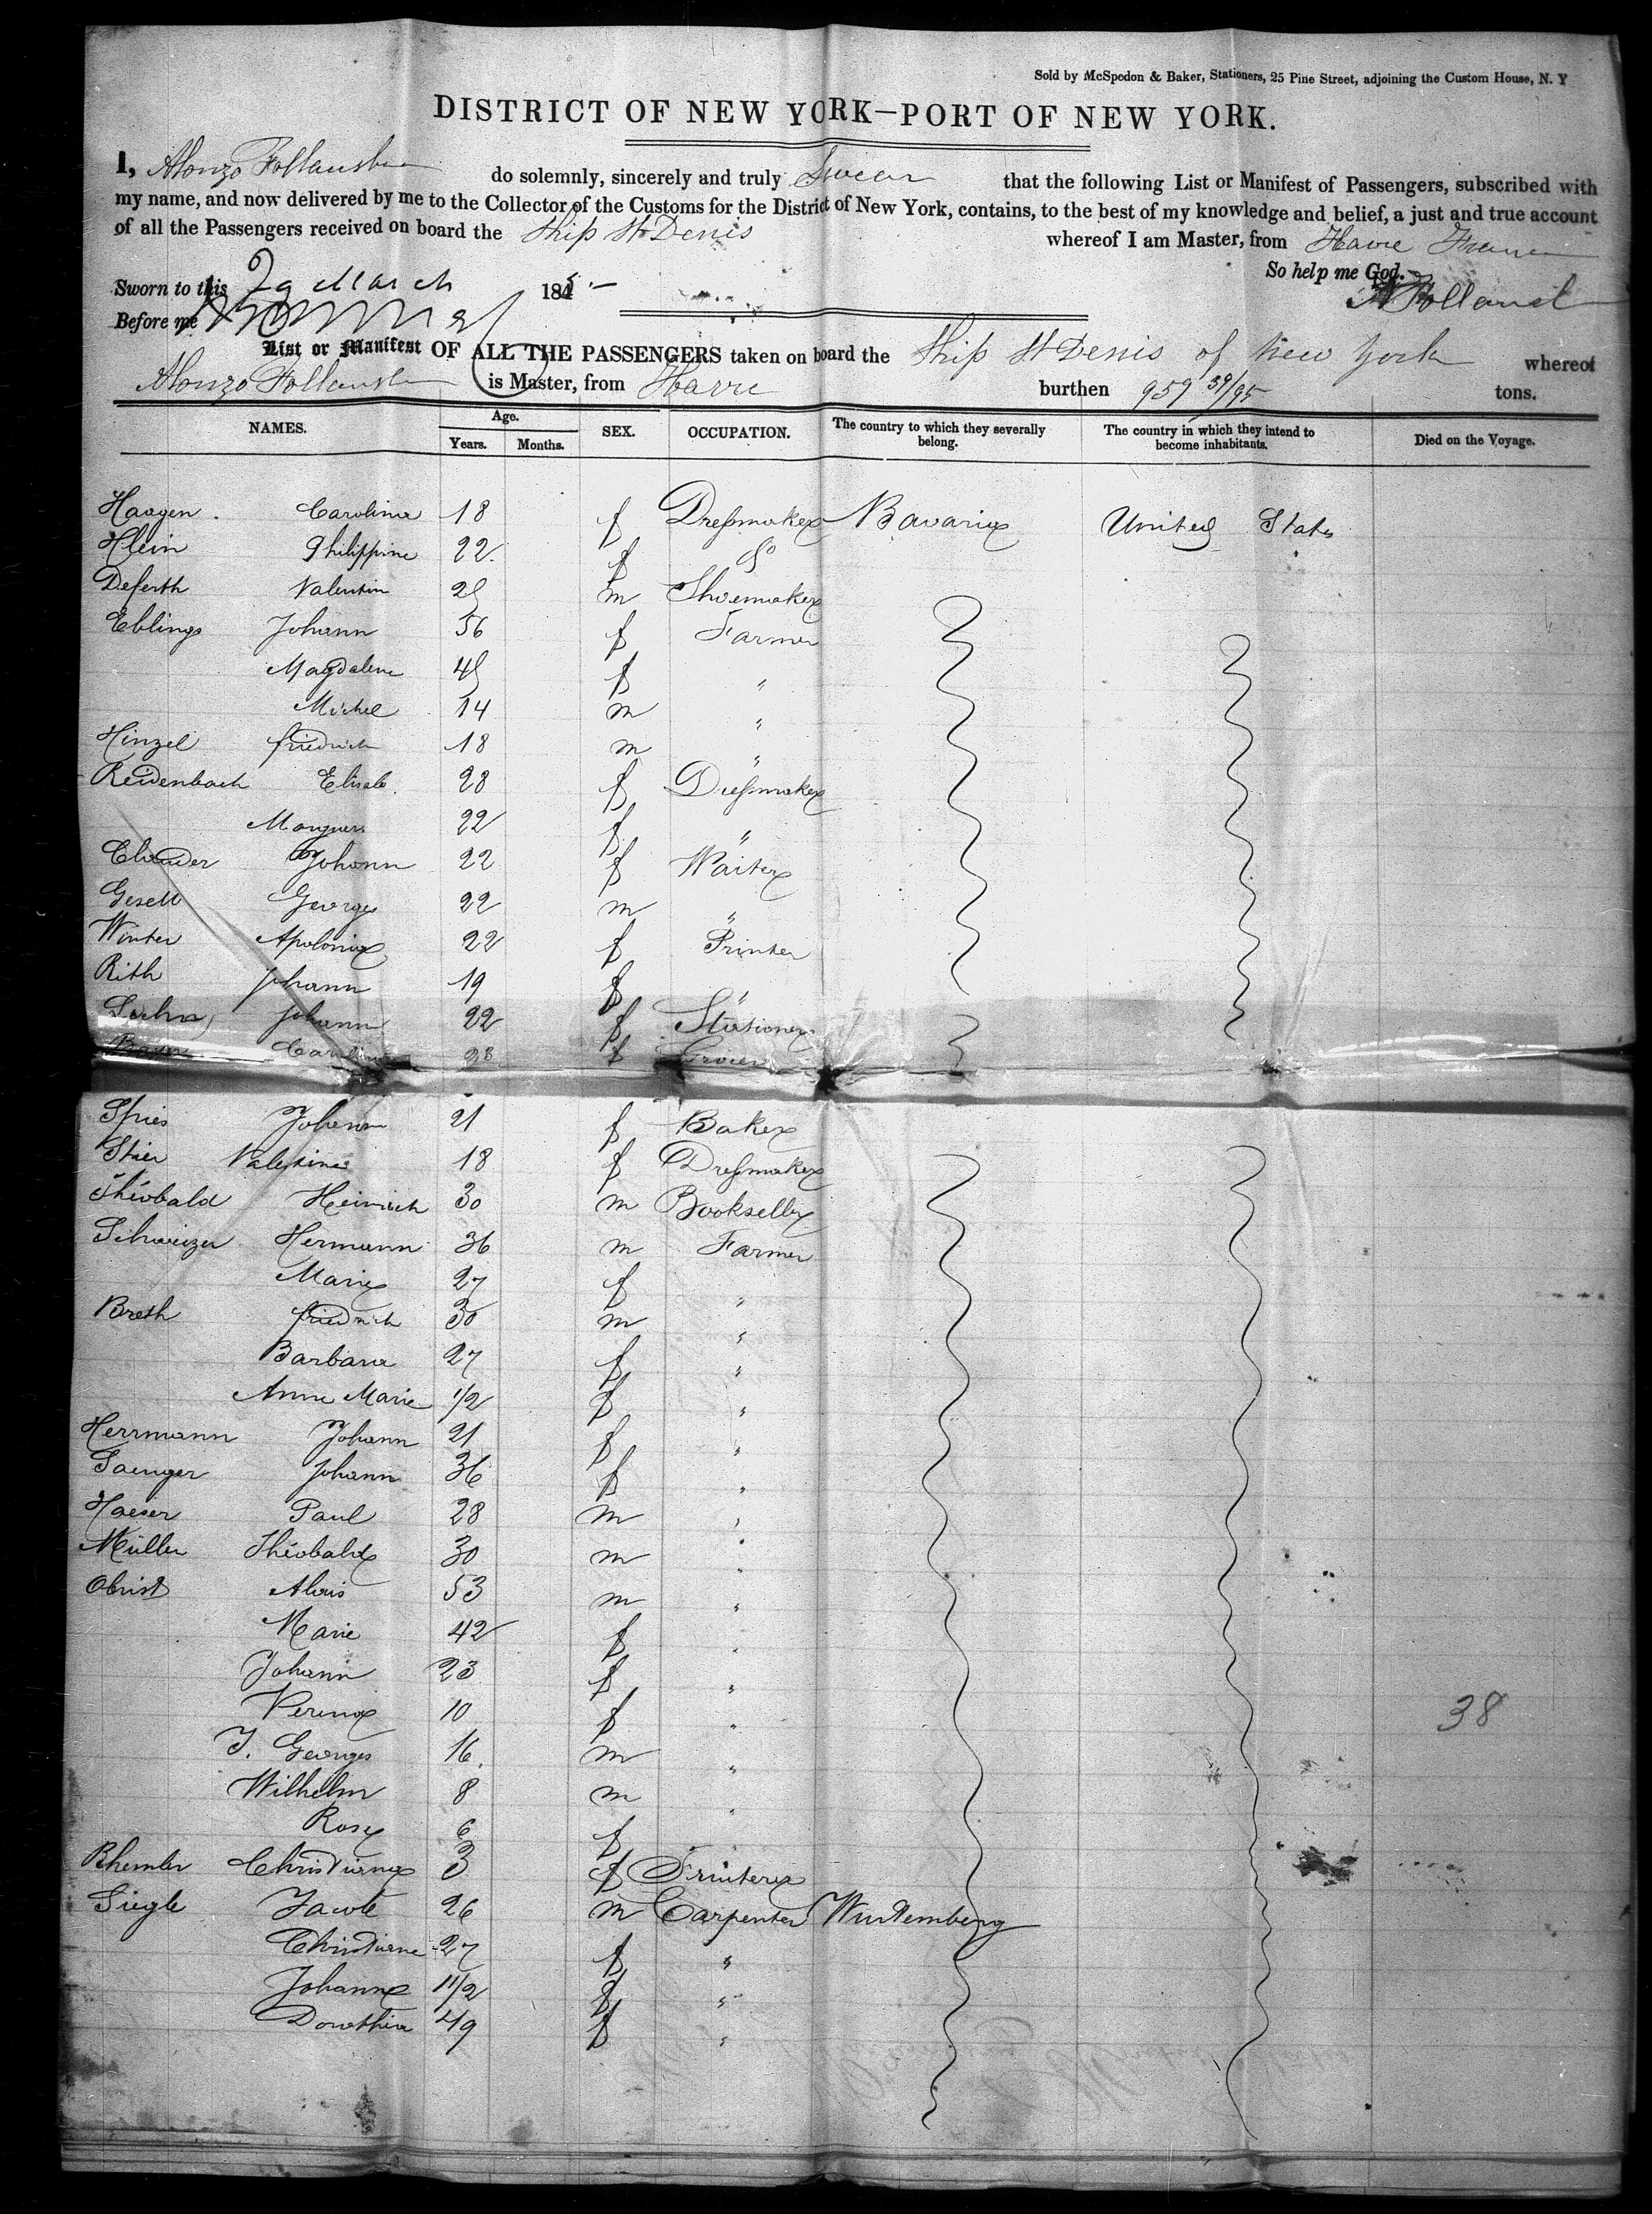 Sold by McSpedon & Baker, Stationers, 25 Pine Street, adjoining the Custom House, N. Y
DISTRICT OF NEW YORK—PORT OF NEW YORK.
I, Alonzo Follansbee do solemnly, sincerely and truly Swear that the following List or Manifest of Passengers, subscribed with
my name, and now delivered by me to the Collector of the Customs for the District of New York, contains, to the best of my knowledge and belief, a just and true account
of all the Passengers received on board the Ship St Denis whereof I am Master, from Havre France
So help me God.
Sworn to this 29 March 185
A Follansb
Before me
List or Manifest OF ALL THE PASSENGERS taken on board the Ship St Denis of New York whereof
Alonzo Follansbee is Master, from Havre burthen 959 39/95 tons.
NAMES. Age. Years. Months. SEX. OCCUPATION. The country to which they severally belong. The country in which they intend to become inhabitants. Died on the Voyage.
Haagen Carolina 18 f Dressmaker Bavaria United States
Klein Philippine 22 f do
Deferth Valentin 25 m Shoemaker
Eblings Johann 56 f Farmer
Magdalene 45 f "
Michel 14 m "
Hinzel friedrich 18 m "
Reidenbach Elisab. 28 f Dressmaker
Marguer. 22 f "
Johann 22 f Waiter
Gesell George 22 m "
Winter Apolonia 22 f Printer
Rith Johann 19 f "
Johann 22 f Stationer
Carolina 23 f
Spies Johann 21 f Baker
Stier Valentine 18 f Dressmaker
Théobald Heinrich 30 m Bookseller
Schweizer Hermann 36 m Farmer
Marie 27 f "
Breth friedrich 30 m "
Barbara 27 f "
Anne Marie 1/2 f "
Herrmann Johann 21 f "
Saenger Johann 36 f "
Haeser Paul 28 m "
Müller Théobald 30 m "
Obrist Alois 53 m "
Marie 42 f "
Johann 23 f "
Verena 10 f "
38
J. Georges 16 m "
Wilhelm 8 m "
Rosa 6 f "
Rhemler Christiana 3 f Printer
Siegle Jacob 26 m Carpenter Wurtemberg
Christiane 27 f "
Johanna 11/2 f "
Dorothea 49 f "